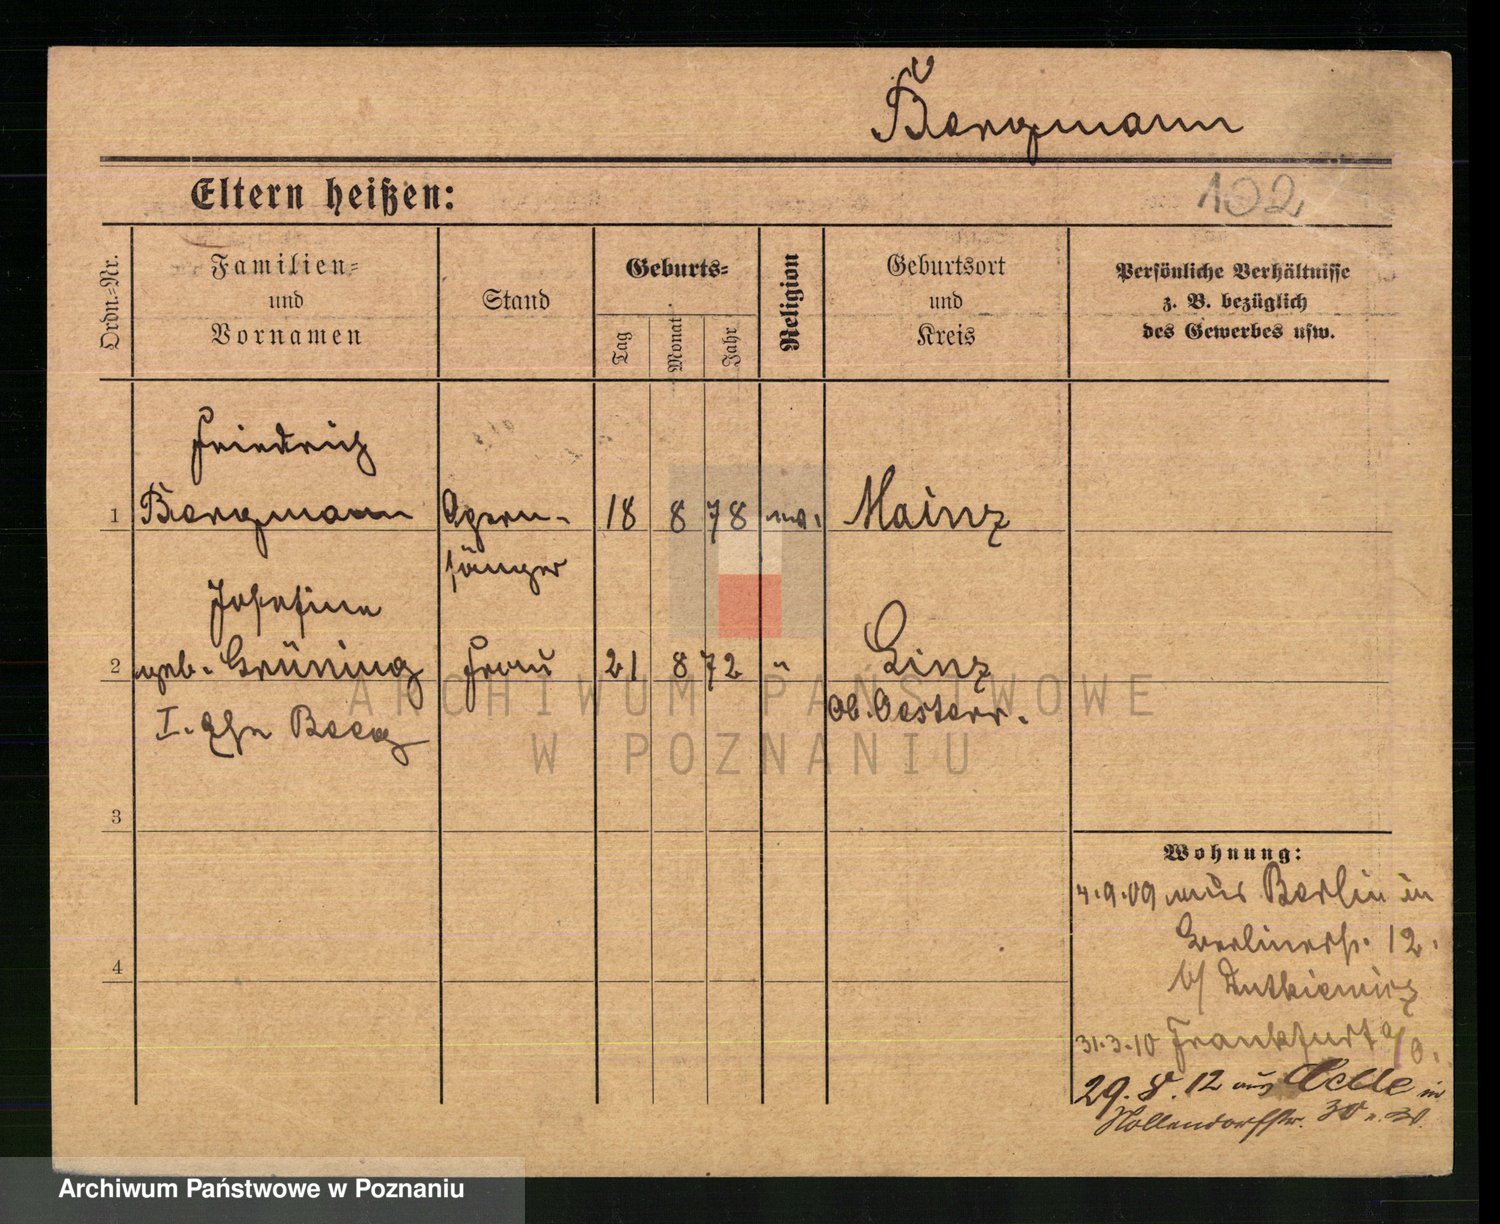 Bergmann
Eltern heißen:
102
Ordn.-Nr.
Familien-
und
Vornamen
Stand
Geburts-
Tag
Monat
Jahr
Religion
Geburtsort
und
Kreis
Persönliche Verhältnisse
z. B. bezüglich
des Gewerbes usw.
Friedrich
1 Bergmann Opern- 18 8 78 Mainz
sänger
Josefine
2 geb. Grüning Frau 21 8 72 " Linz
I. Ehe Ob. Oesterr.
3
4
Wohnung:
4.9.09 aus Berlin in
Berlinerstr. 12.
b/ Dutkiewicz
31.3.10 Frankfurt a/O.
29.8.12 aus Celle in
Hollendorfstr. 30
ARCHIWUM PAŃSTWOWE
W POZNANIU
Archiwum Państwowe w Poznaniu